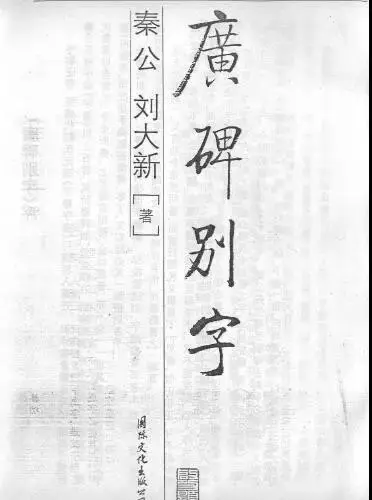 廣碑别字
秦公 刘大新
[著]
国际文化出版公司